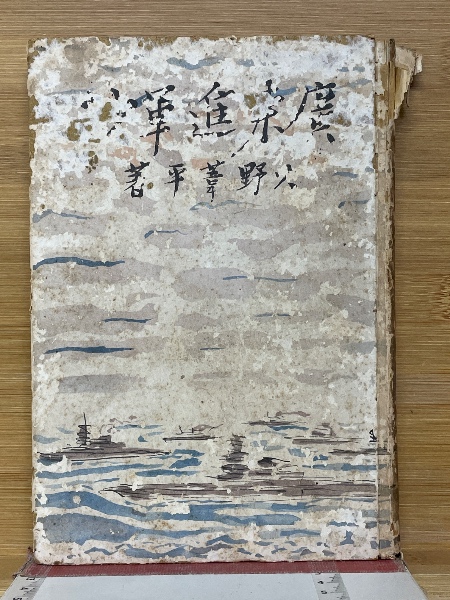 廣東進軍抄
火野葦平著